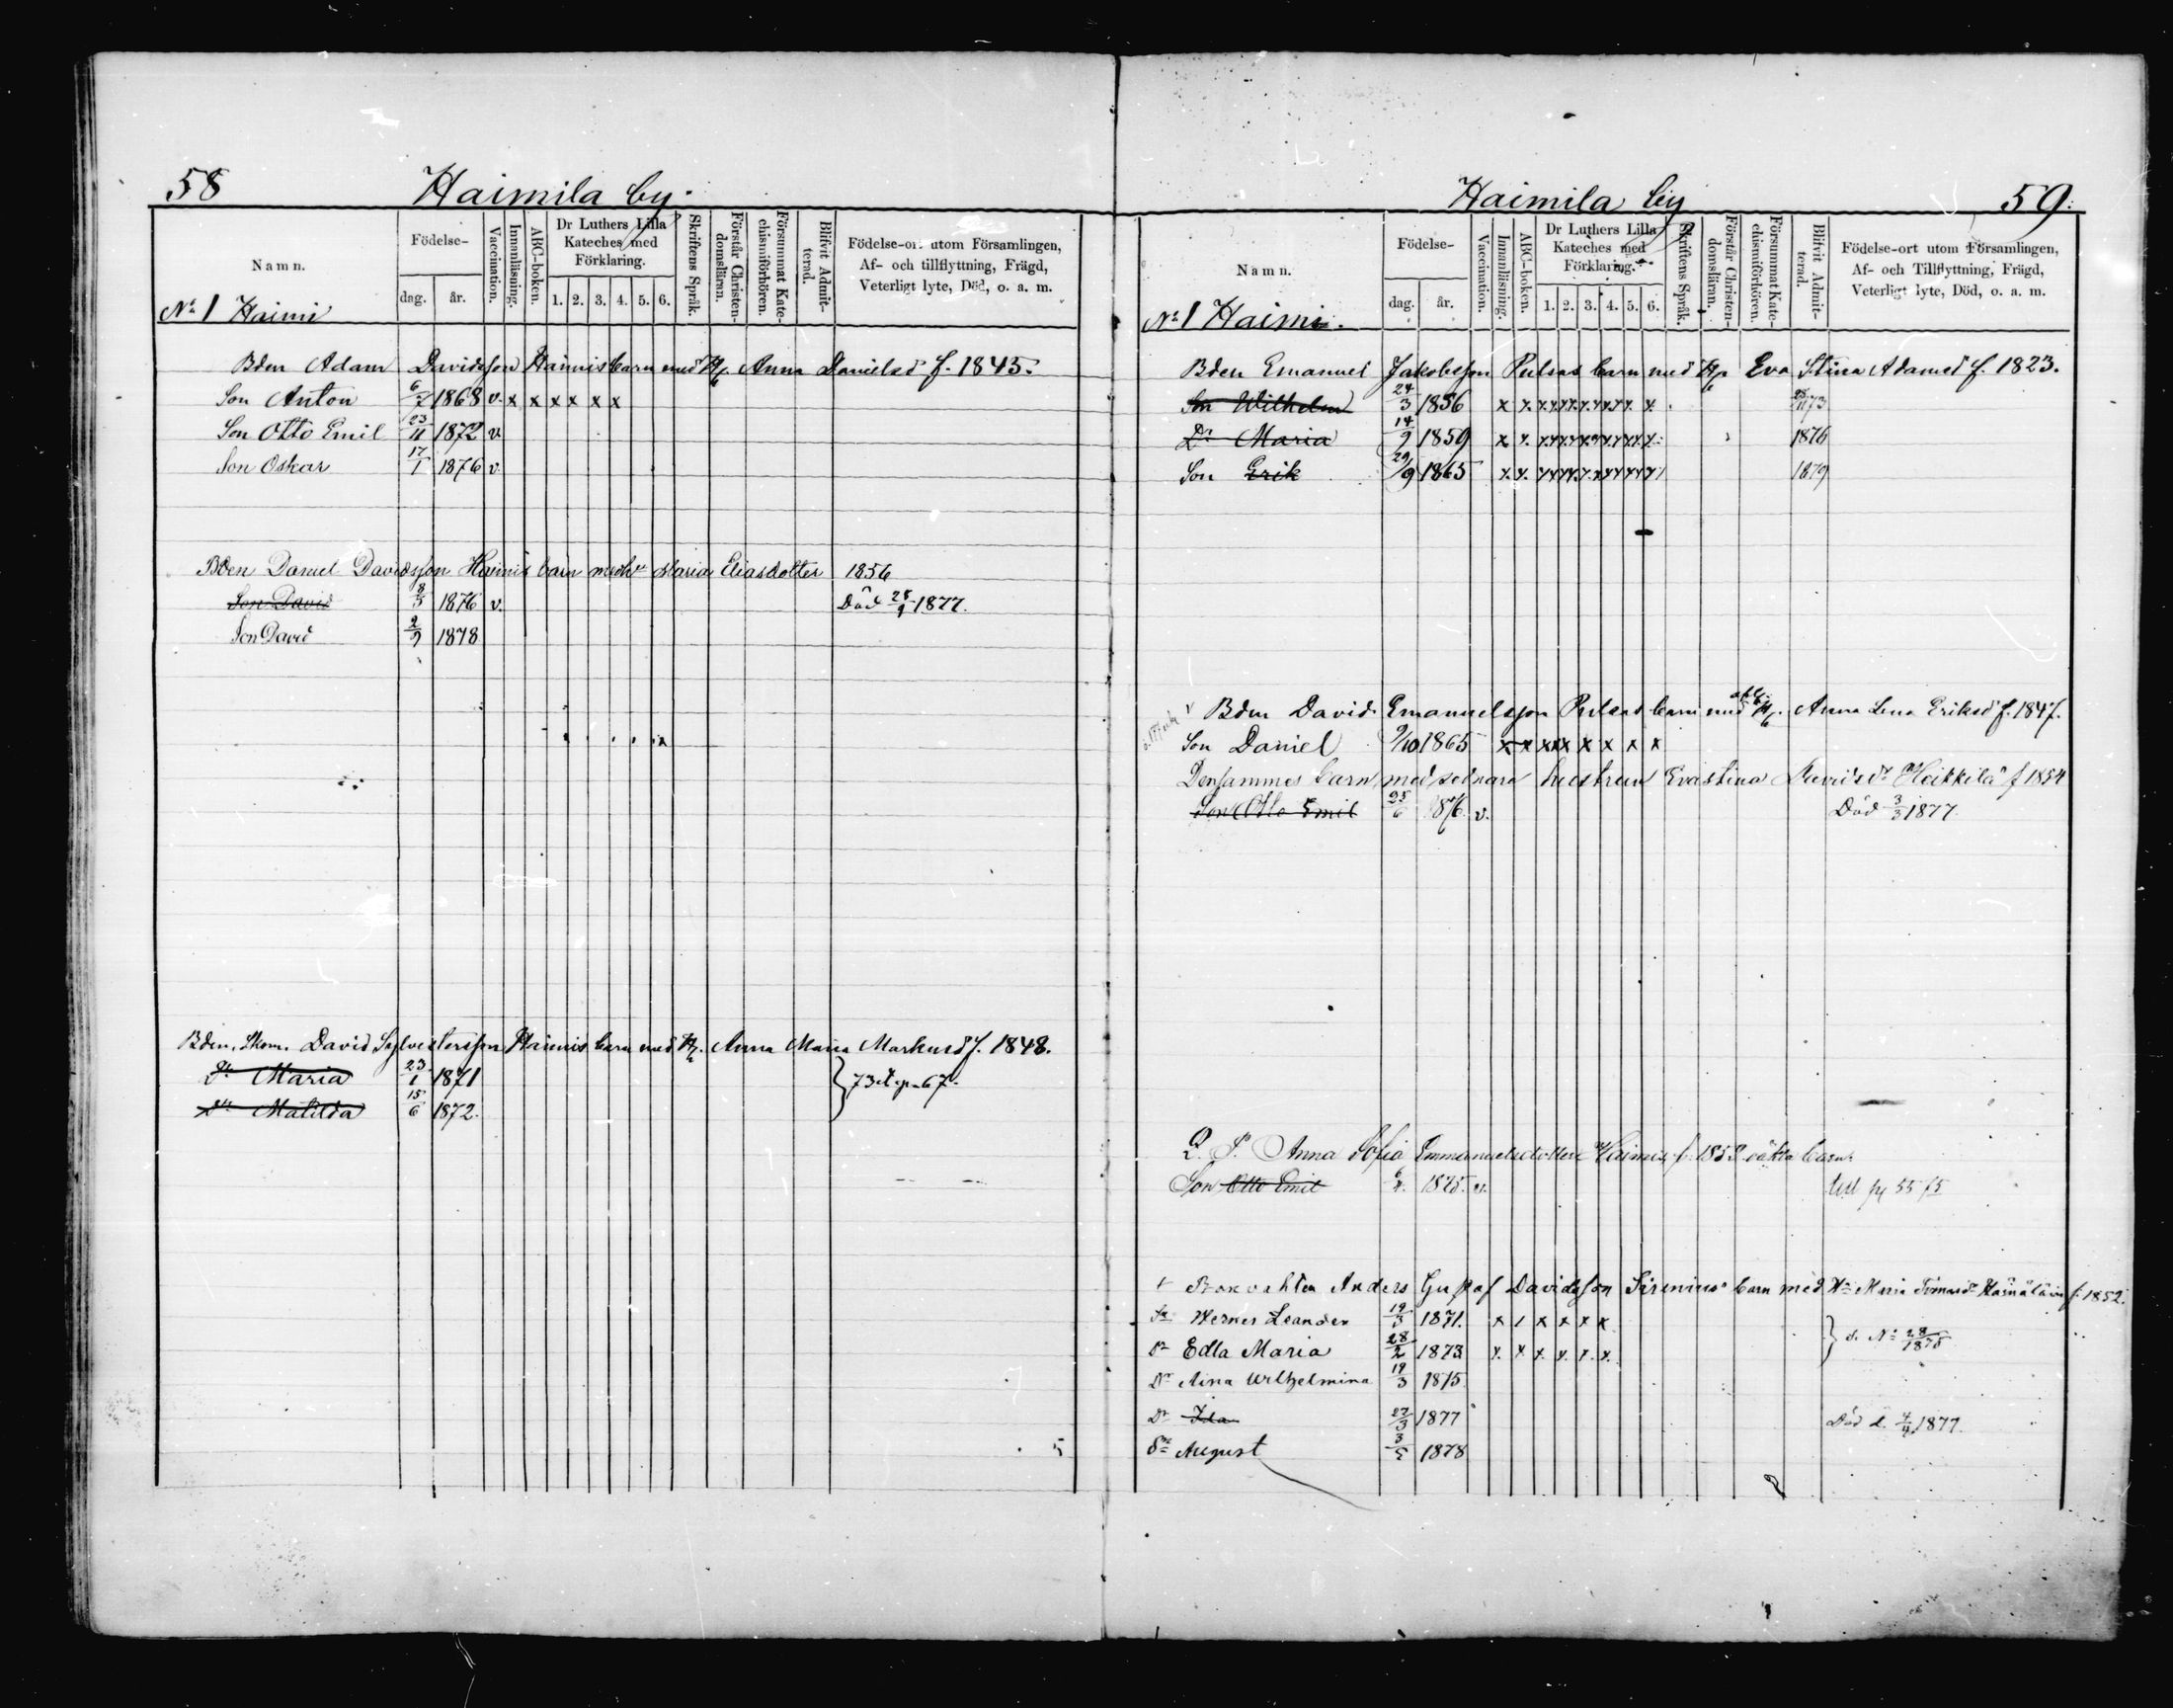 58 Haimila by.
Namn. Födelse- dag. år. Vaccination. Innanläsning. ABC-boken. Dr Luthers Lilla Kateches med Förklaring. 1. 2. 3. 4. 5. 6. Skriftens Språk. Förstår Christendomsläran. Försummat Katechismiförhören. Blifvit Admitterad. Födelse-ort utom Församlingen, Af- och tillflyttning, Frägd, Veterligt lyte, Död, o. a. m.
No 1 Haimi
Bden Adam Davidsson Haimis barn med H. Anna Danielsd f. 1845.
Son Anton 6/7 1868 v. x x x x x x
Son Otto Emil 23/11 1872 v.
Son Oskar 17/1 1876 v
Bden Daniel Davidsson Haimis barn med hu Maria Eliasdotter 1856
Son David 8/3 1876 v. Död 28/9 1877.
Son David 2/9 1878
Bden, Skom. David Sylvestersson Haimis barn med H. Anna Maria Markusd f. 1848.
Dr Maria 23/1 1871 } 73 på 67.
Dr Matilda 15/6 1872.
Haimila by 59.
Namn. Födelse- dag. år. Vaccination. Innanläsning. ABC-boken. Dr Luthers Lilla Kateches med Förklaring. 1. 2. 3. 4. 5. 6. Skriftens Språk. Förstår Christendomsläran. Försummat Katechismiförhören. Blifvit Admitterad. Födelse-ort utom Församlingen, Af- och Tillflyttning, Frägd, Veterligt lyte, Död, o. a. m.
No 1 Haimi.
Bden Emanuel Jakobsson Pulsas barn med H. Eva Stina Adamsd f. 1823.
Son Wilhelm 24/3 1856 73
Dr Maria 14/9 1859 1876
Son Erik 29/9 1865 1879
Bden David Emanuelsson Pulsas barn med afl. H. Anna Lena Eriksd f. 1847.
Son Daniel 9/10 1865 x x x x x x x x x
Densammes barn med sednare hustrun Evastina Davidsdr Heikkilä f 1854
Son Otto Emil 25/6 1876. v. Död 3/3 1877
Q. P. Anna Sofia Emmanuelsdotter Haimis f. 1853 oäkta barn.
Son Otto Emil 1875. v. 55
Banvakten Anders Gustaf Davidsson Sirenius' barn med Hu Maria f. 1852.
Sn Werner Leander 19/3 1871. x x x x x x
Dr Edla Maria 28/2 1873 x x x x x x } d. No 28/1875
Dr Aina Wilhelmina 19/3 1875
Dr Ida 27/3 1877 Död d. 4/4 1877.
Sn August 3/5 1878